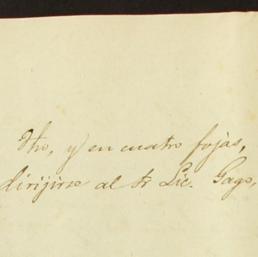 dho, y en cuatro fojas,
dirijirse al Sr Lic. Gago,